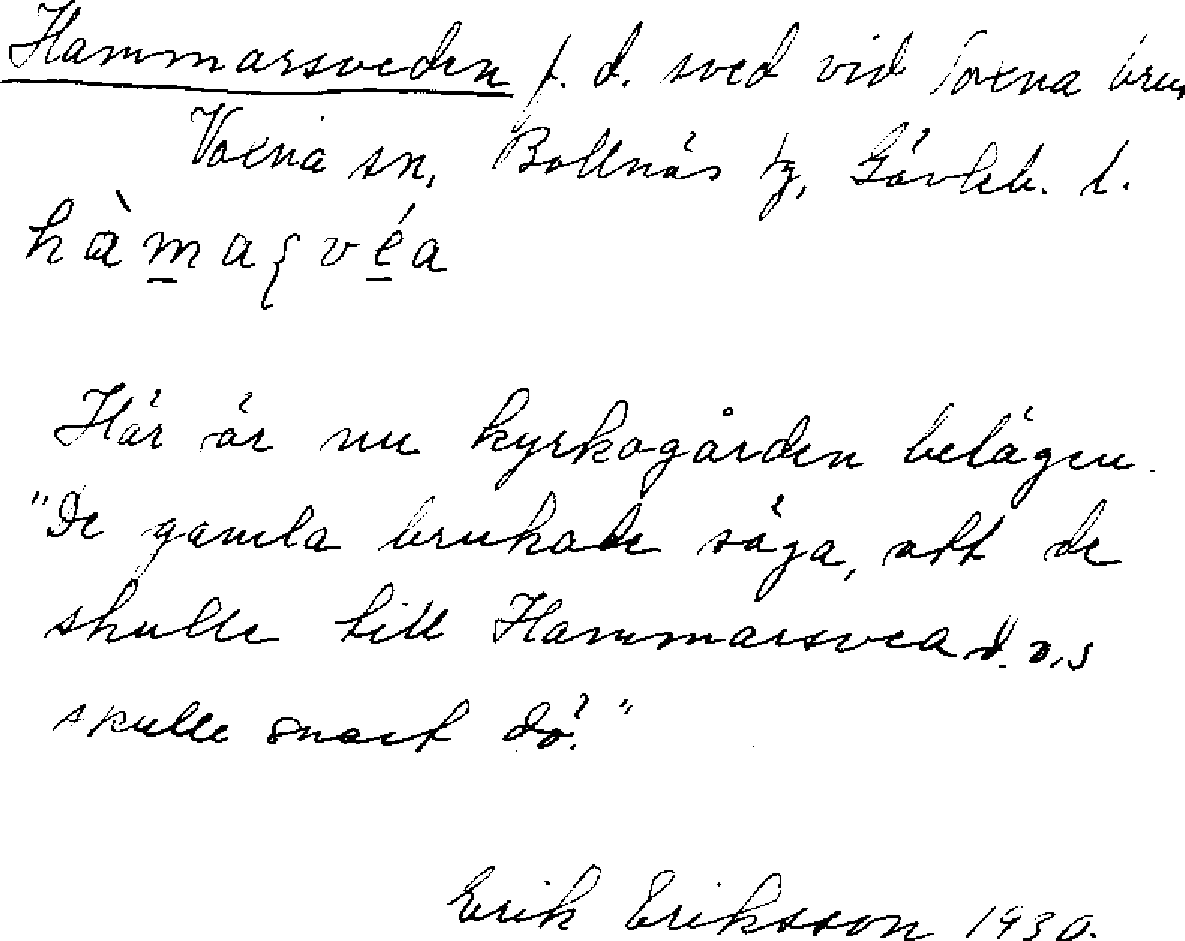 Hammarsveden f. d. sved vid Voxna bru
Voxna sn, Bollnäs tg, Gävleb. l.
hàmaʂvéa
Här är nu kyrkogården belägen.
"De gamla brukade säga, att de
skulle till Hammarsvea d.v.s
skulle snart dö."
Erik Eriksson 1930.